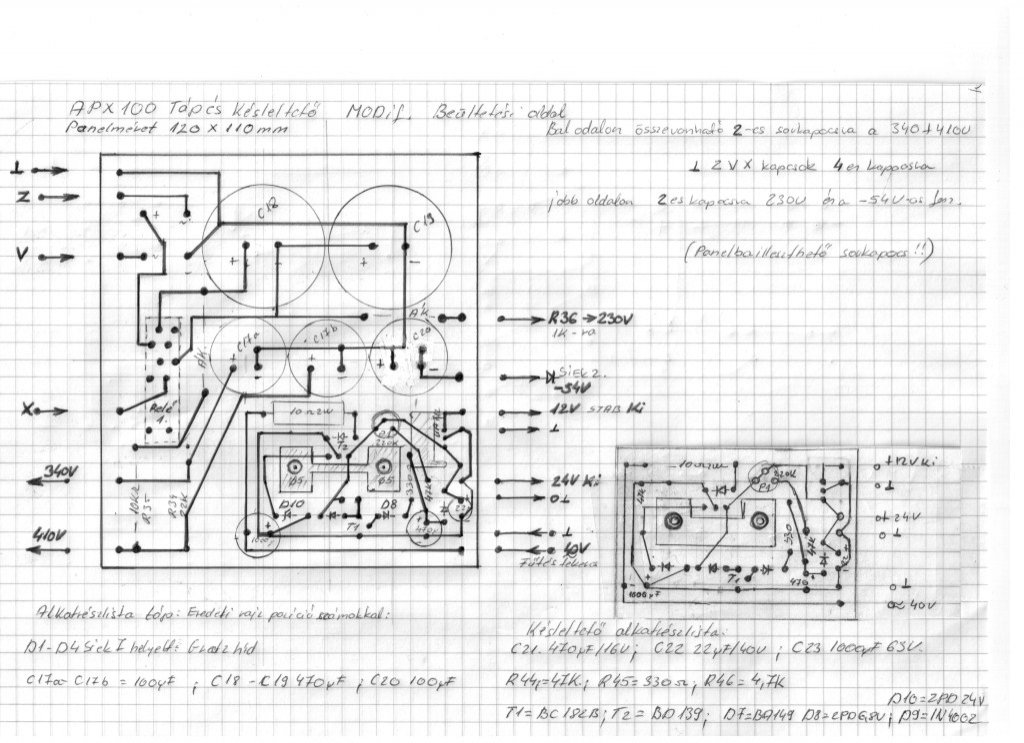 APX 100 Táp és Késleltető MODIf. Beültetési oldal
Panelméret 120 X 110 mm
Bal odalon összevonható 2-es sorkapocsra a 340+410V
⊥ Z V X kapcsok 4 es kapocsba
jobb oldalon 2 es kapocsra 230V és a -54V-os
(Panelbailleszthető sorkapocs!!)
⊥
Z
V
X
340V
410V
C18
C19
C17a
C17b
C20
ÁK.
ÁK.
Relé
1.
10KΩ
R35
R34
22K
10Ω2W
T2
220K
Ø5
Ø5
D10
D8
T1
330Ω
47K
470µ
R36 → 230V
1K-ra
SIEK 2.
-54V
12V STAB Ki
⊥
24V Ki
0⊥
⊥
40V
Fűtés tekera
10Ω2W
47K
220K
P1
330
47K
T1
470
1000µF
+12V Ki
⊥
24V
⊥
⊥
≈ 40V
Alkatrészlista táp: Eredeti rajz pozíció számokkal:
D1-D4 Siek I helyett: Graetz híd
C17a-C17b = 100µF ; C18 - C19 470µF ; C20 100µF
Késleltető alkatrészlista:
C21. 470µF/16V ; C22 22µF/40V ; C23 1000µF 63V.
R44=47K ; R45=330Ω ; R46=4,7K
D10=ZPD 24V
T1=BC182B ; T2=BD139 ; D7=BA149 D8=ZPD6,8V ; D9=1N4002